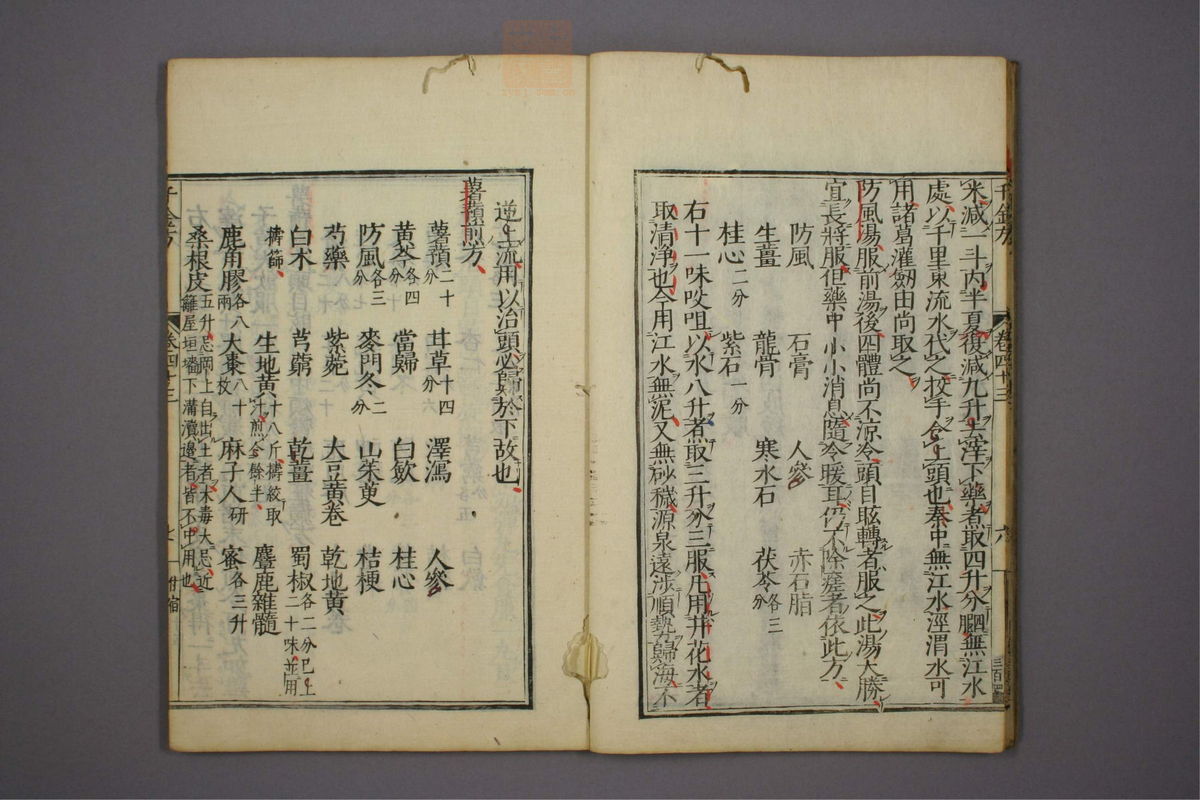 米減一斗内半夏復減九升去滓下藥煮取四升分服無江水
處以千里東流水代之投手令上頭也秦中無江水涇渭水可
用諸葛灌劒由尚取之
防風湯服前湯後四體尚不涼冷頭目眩轉者服之此湯大勝
宜長將服但藥中小小消息隨冷暖耳仍不除差者依此方
防風 石膏 人參 赤石脂
生薑 龍骨 寒水石 茯苓各三分
桂心二分 紫石一分
右十一味㕮咀以水八升煮取三升分三服凡用井花水者
取清淨也今用江水無泥又無砂穢源泉遠涉順勢歸海不
卷四十三
六
逆上流用以治頭必歸於下故也
薯蕷煎方
薯蕷二十分 甘草十四分 澤瀉 人參
黃芩各四分 當歸 白歛 桂心
防風各三分 麥門冬二分 山茱萸 桔梗
芍藥 紫菀 大豆黃卷 乾地黃
白朮 芎藭 乾薑 蜀椒各二分已上二十味並用
擣篩 生地黃十八斤擣絞取汁煎令餘半 麞鹿雜髓
鹿角膠各八兩 大棗八十枚 麻子人研 蜜各三升
桑根皮五升忌兩上籬屋垣墻下溝瀆邊者皆不中用也自出土者木毒大忌近
千金方
卷四十三
七